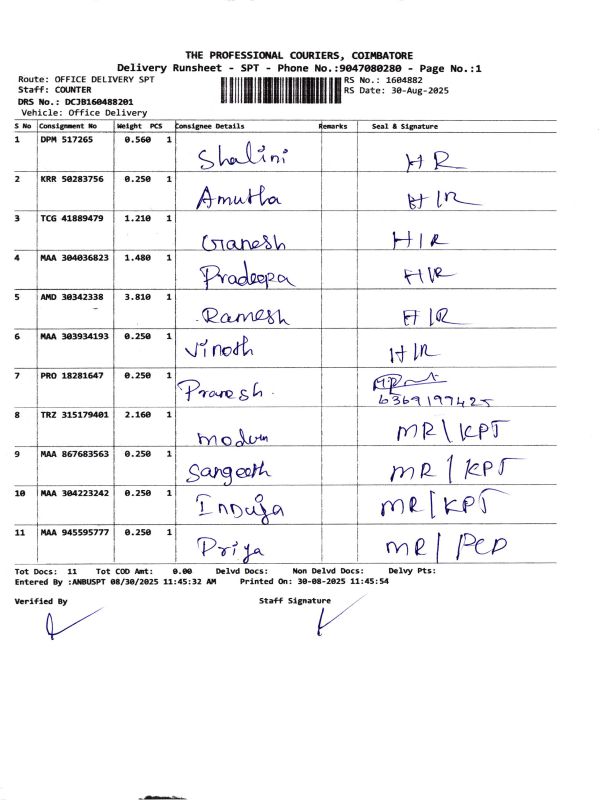 THE PROFESSIONAL COURIERS, COIMBATORE
Delivery Runsheet - SPT - Phone No.:9047080280 - Page No.:1
Route: OFFICE DELIVERY SPT RS No.: 1604882
Staff: COUNTER RS Date: 30-Aug-2025
DRS No.: DCJB160488201
Vehicle: Office Delivery
S No Consignment No Weight PCS Consignee Details Remarks Seal & Signature
1 DPM 517265 0.560 1 Shalini H R
2 KRR 50283756 0.250 1 Amutha H/R
3 TCG 41889479 1.210 1 Ganesh H/R
4 MAA 304036823 1.480 1 Pradeepa H/R
5 AMD 30342338 3.810 1 Ramesh H/R
6 MAA 303934193 0.250 1 Vinoth H/R
7 PRO 18281647 0.250 1 Pranesh. 6369197425
8 TRZ 315179401 2.160 1 modern MR\KPT
9 MAA 867683563 0.250 1 Sangeeth MR/KPT
10 MAA 304223242 0.250 1 Induja MR/KPT
11 MAA 945595777 0.250 1 Priya MR/PCD
Tot Docs: 11 Tot COD Amt: 0.00 Delvd Docs: Non Delvd Docs: Delvy Pts:
Entered By :ANBUSPT 08/30/2025 11:45:32 AM Printed On: 30-08-2025 11:45:54
Verified By Staff Signature